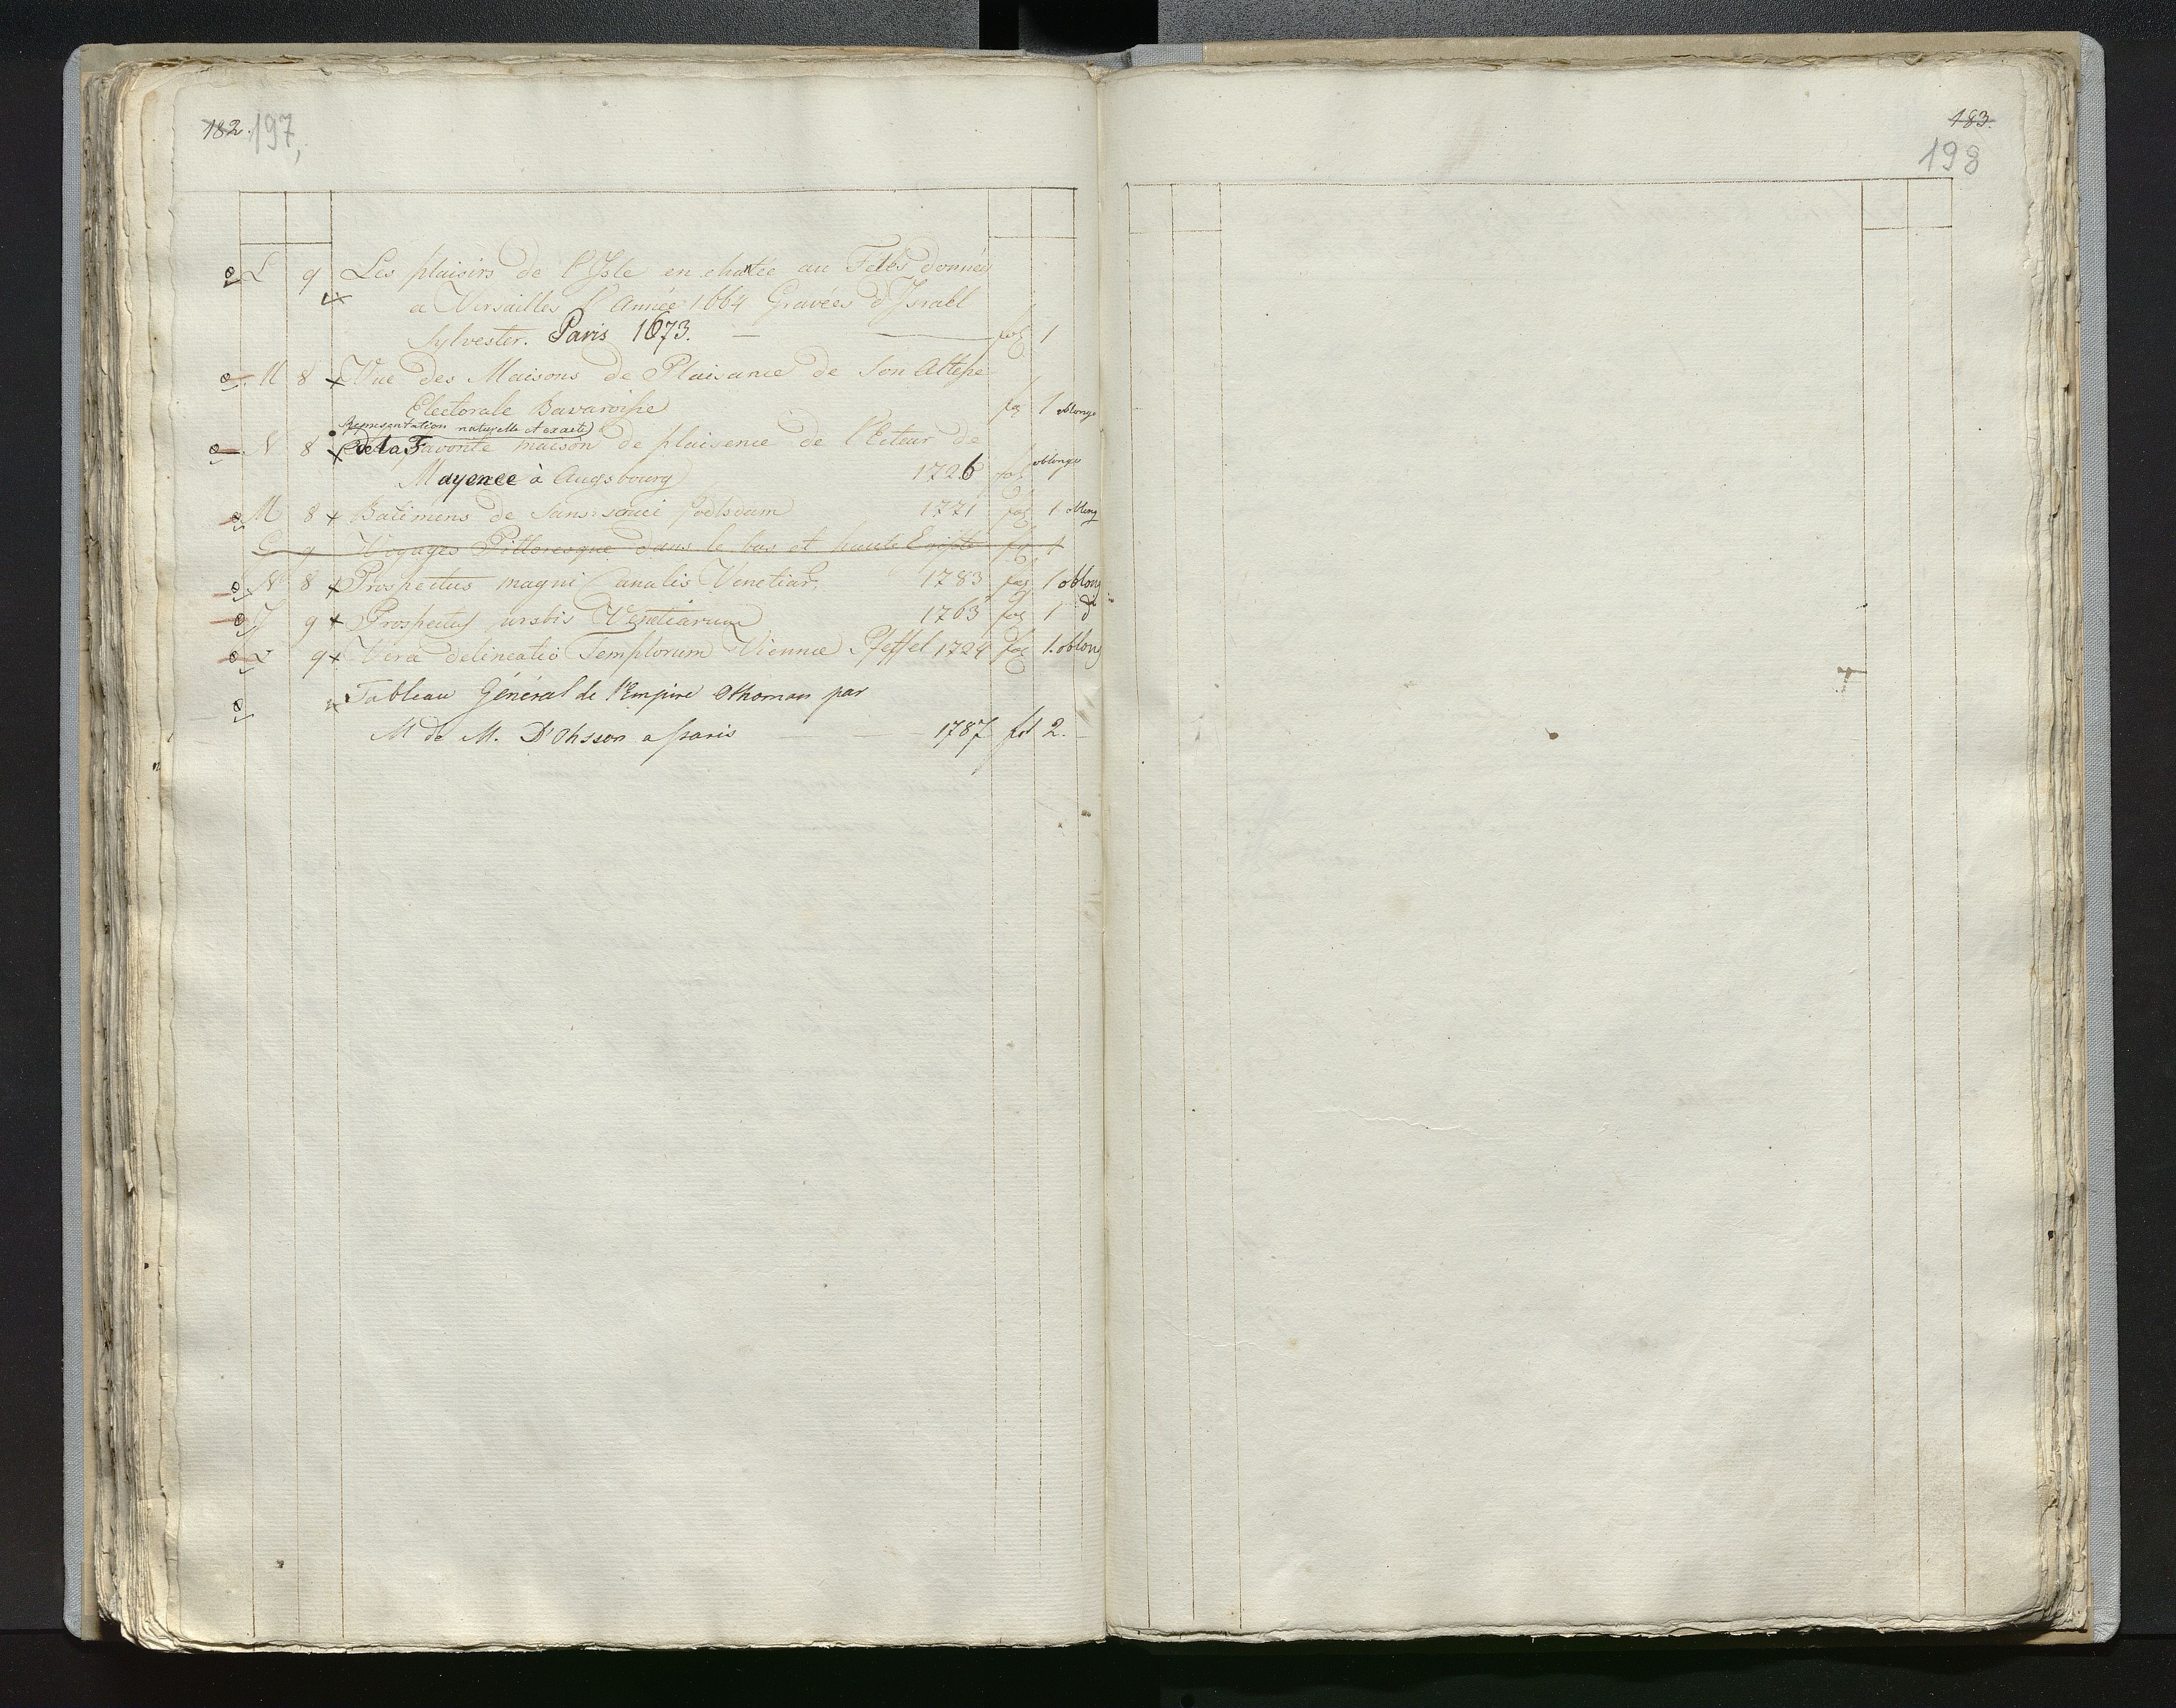 182. 197,
L 9 Les plaisirs de l'Isle en chatée au Fetes données
a Versailles l'Année 1664 Gravées d'Israel
Sylvester. Paris 1673. — fol 1
M 8 + Vue des Maisons de Plaisance de Son Altesse
Electorale Bavaroisse fol 1 oblongo
Representation naturelle et exacte
N 8 + de la Favorite maison de plaisence de l'Ecteur de
Mayence à Augsbourg 1726 fol 1 oblongo
M 8 + Batimens de Sans-souci Podsdam 1771 fol 1 oblong
G 9 Voyages Pittoresque dans le bas et haute Egipte fol 1
N 8 + Prospectus magni Canalis Venetiar. 1783 fol 1 oblong
J 9 + Prospectus urbis Venetiarum 1763 fol 1 d
L 9 + Vera delineatio Templorum Viennæ Pfeffel 1724 fol 1. oblong
Tableau Général de l'Empire Othoman par
M de M. D'Ohsson a paris 1787 fol 2.
183.
198